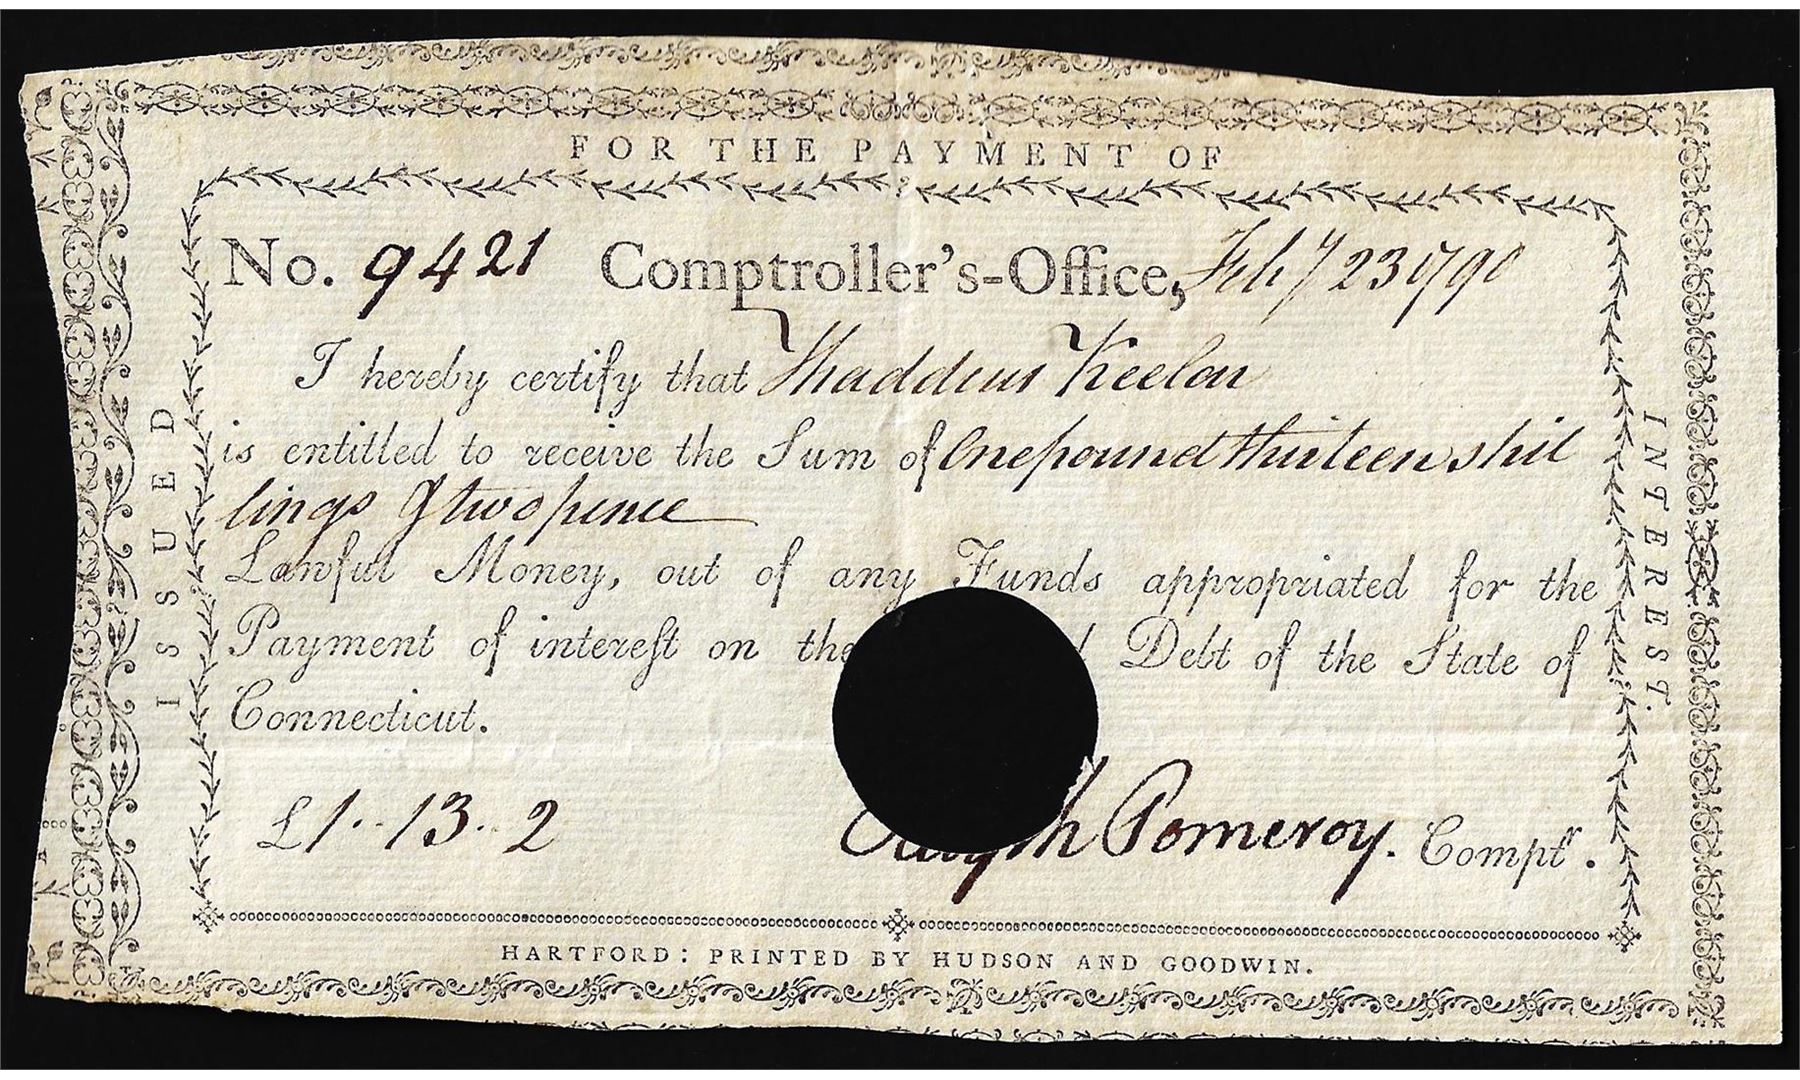 FOR THE PAYMENT OF
No. 9421 Comptroller's-Office, Feby 23 1790
I hereby certify that Thaddeus Keelor
is entitled to receive the Sum of One pound thirteen shil
lings & two pence
Lawful Money, out of any Funds appropriated for the
Payment of interest on the Debt of the State of
Connecticut.
£1..13.2
Pomeroy. Compt<sup>r</sup>.
HARTFORD: PRINTED BY HUDSON AND GOODWIN.
ISSUED
INTEREST.